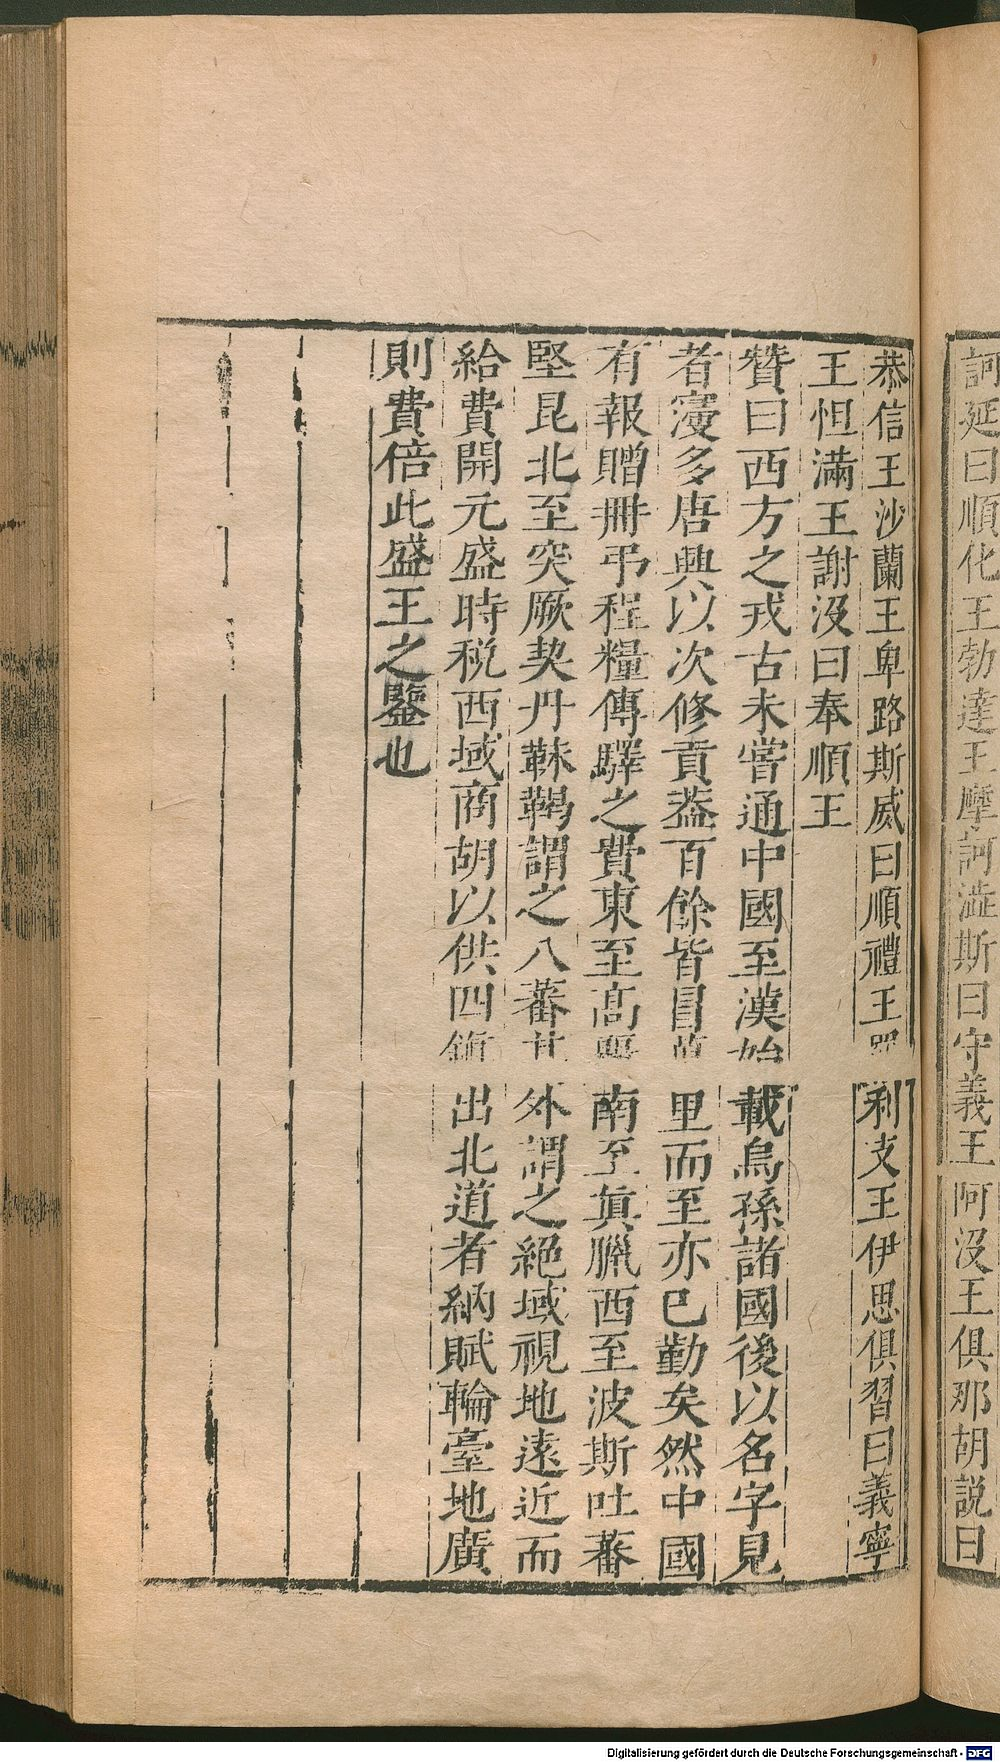 訶延曰順化王勃達王摩訶澁斯曰守義王阿沒王俱那胡説曰
恭信王沙蘭王卑路斯威曰順禮王罽利支王伊思俱習曰義寧
王怛滿王謝沒曰奉順王
贊曰西方之戎古未嘗通中國至漢始載烏孫諸國後以名字見
者寖多唐興以次修貢葢百餘皆冒萬里而至亦已勤矣然中國
有報贈冊弔程糧傳驛之費東至高麗南至眞臘西至波斯吐蕃
堅昆北至突厥契丹靺鞨謂之八蕃其外謂之絕域視地遠近而
給費開元盛時税西域商胡以供四鎮出北道者納賦輪臺地廣
則費倍此盛王之鑒也
Digitalisierung gefördert durch die Deutsche Forschungsgemeinschaft - DFG